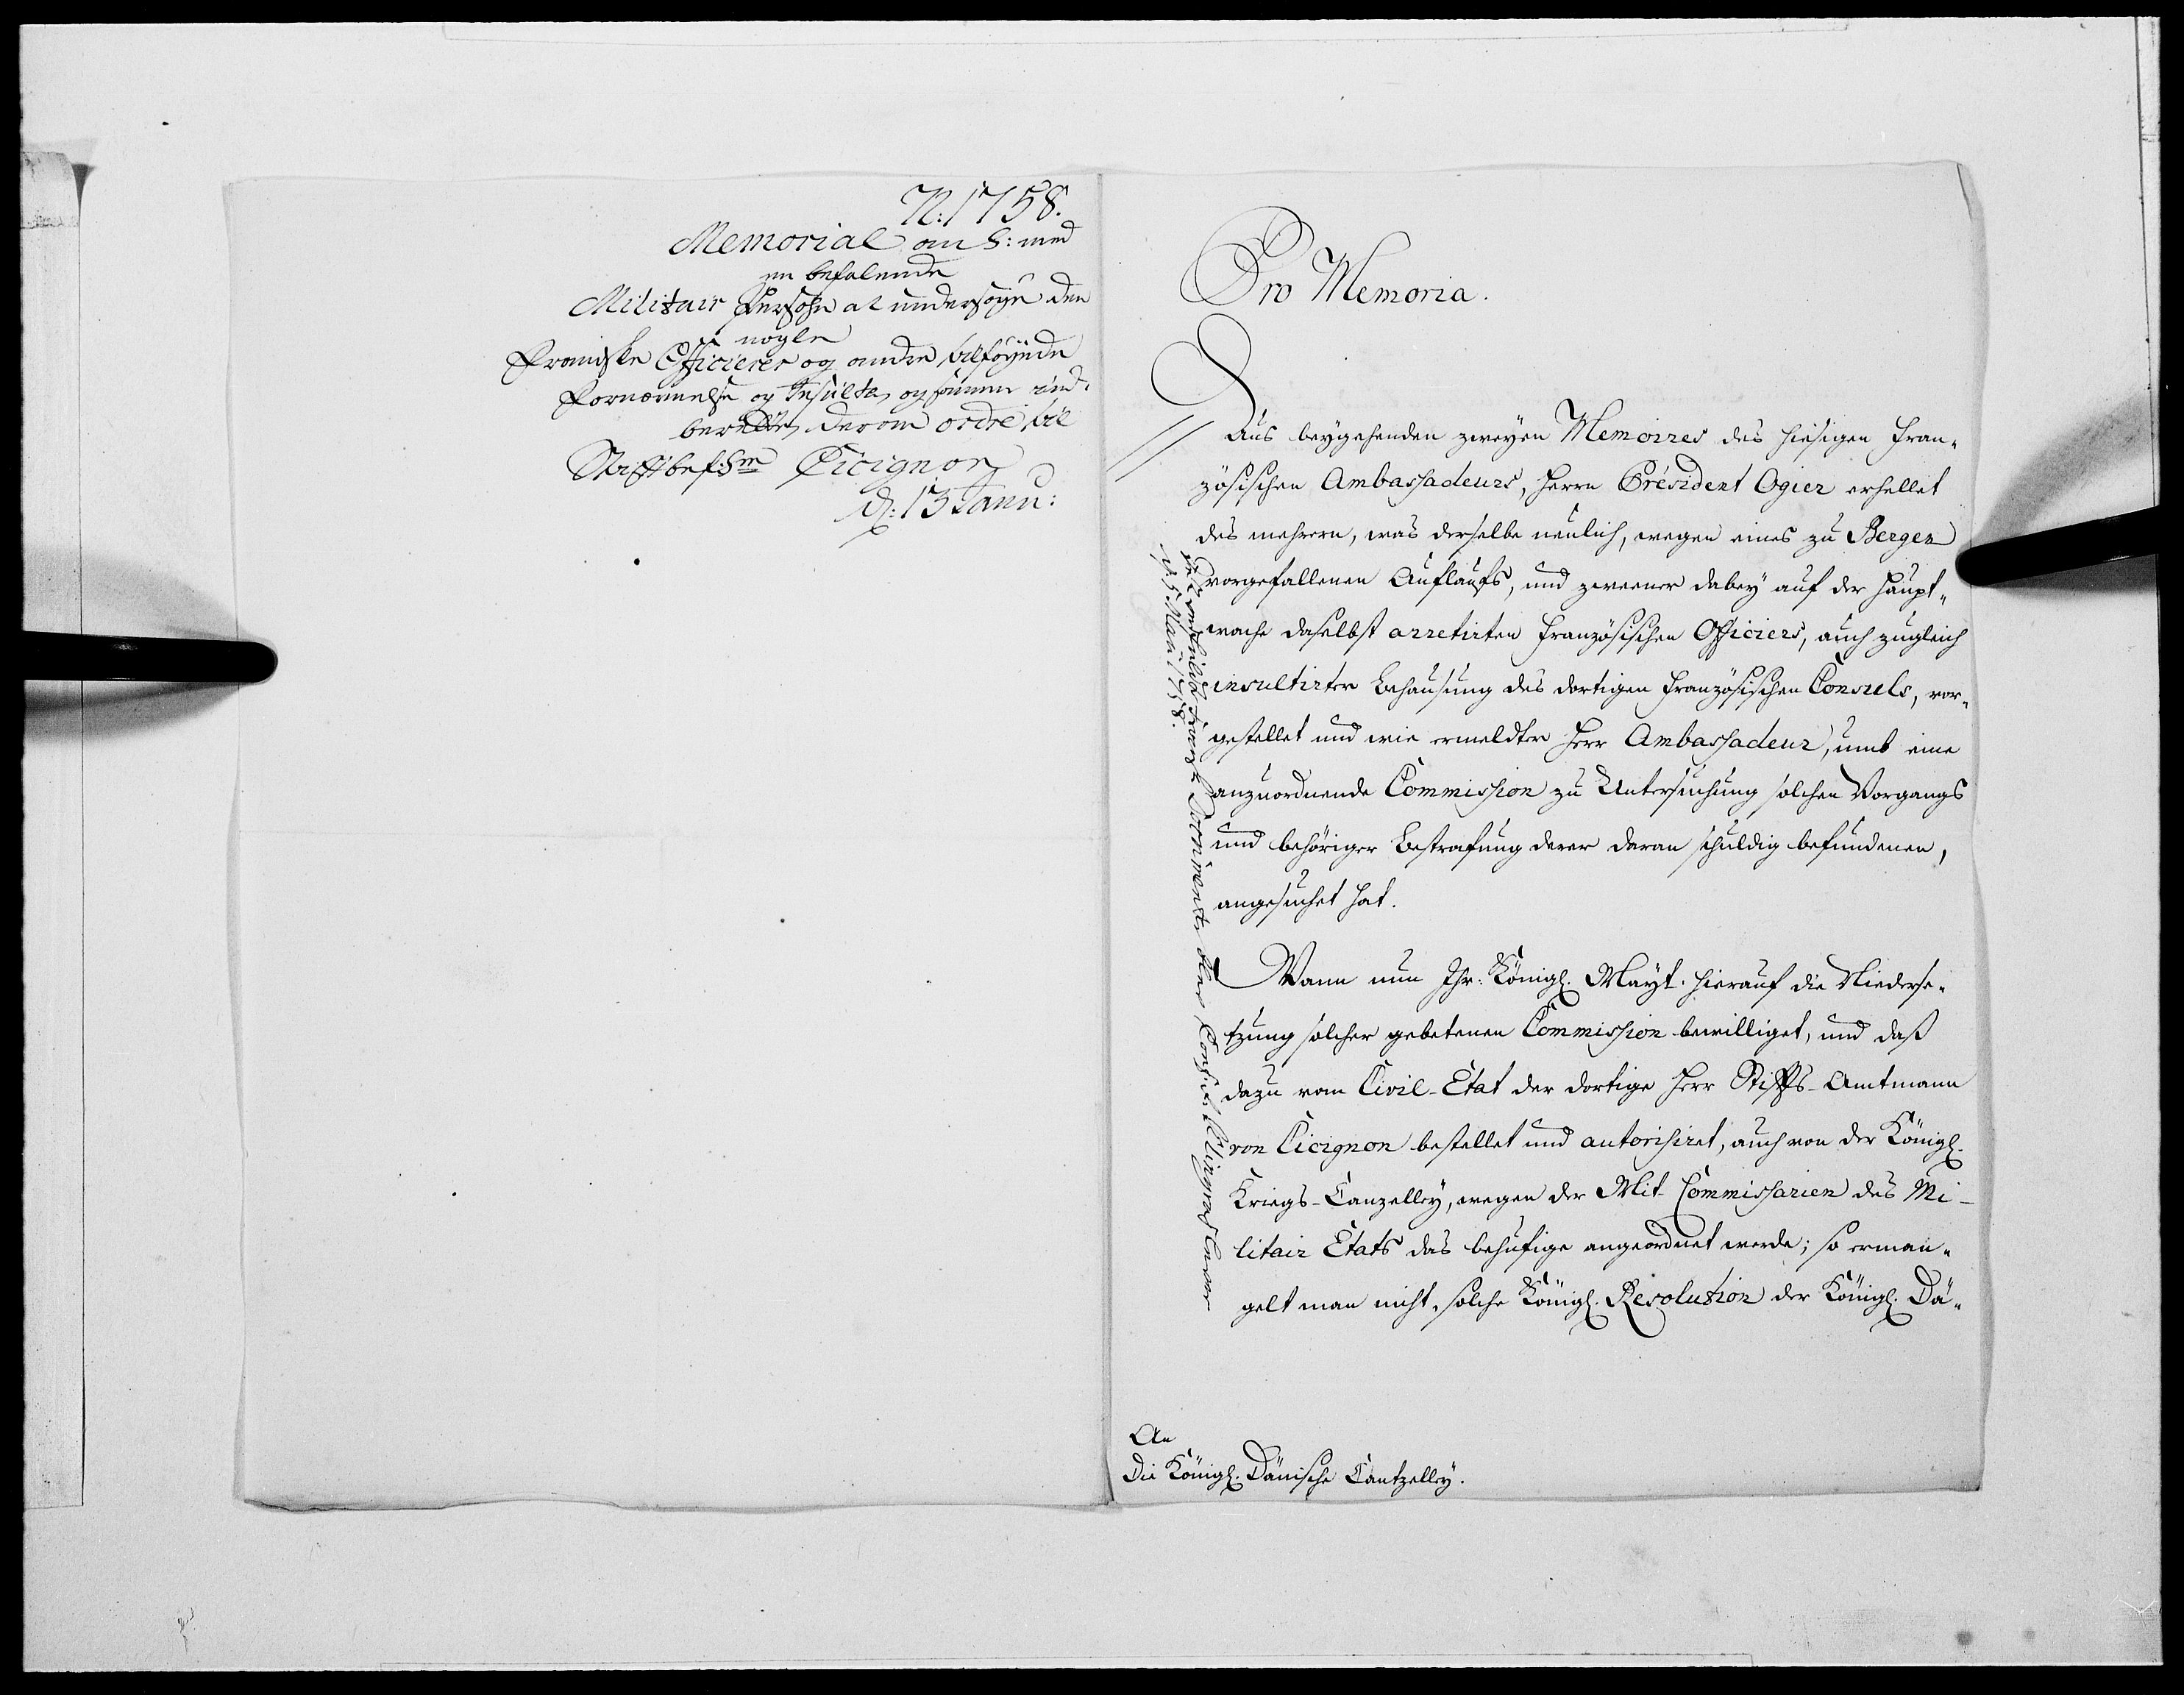 N: 1758.
Memorial an S: med
en befalende
Militair Persohn at undersøge den
nogle
Franske Officierer og andre tilføyede
Fornærmelse og Insulter, og samme ind-
berette, derom ordre til
Stiftbef:hm Cicignon
d: 13 Janu:
Pro Memoria.
Aus beygehenden zweyen Memoires des hiesigen Fran-
zösischen Ambassadeurs, Herrn Président Ogier erhellet
des mehrern, was derselbe neulich, wegen eines zu Bergen
vorgefallenen Auflaufs, und zweener dabey auf der Haupt-
wache daselbst arretirten Französischen Officiers, auch zugleich
insultirter Behausung des dortigen Französischen Consuls, vor-
gestellet und wie ermeldter Herr Ambassadeur, umb eine
anzuordnende Commission zu Untersuchung solchen Vorgangs
und behöriger Bestrafung derer daran schuldig befundenen,
angesuchet hat.
Wann nun Ihr: Königl. Mayt. hierauf die Niederse-
tzung solcher gebetenen Commission bewilliget, und daß
dazu vom Civil-Etat der dortige Herr Stiffts-Amtmann
von Cicignon bestellet und autorisiret, auch von der Königl.
Kriegs-Canzelley, wegen der Mit-Commissarien des Mi-
litair Etats das behufige angeordnet werde; so erman-
gelt man nicht, solche Königl. Resolution der Königl. Dä-
An
Die Königl. Dänische Cantzelley.
Documenter
d: 5 Maii 1758.